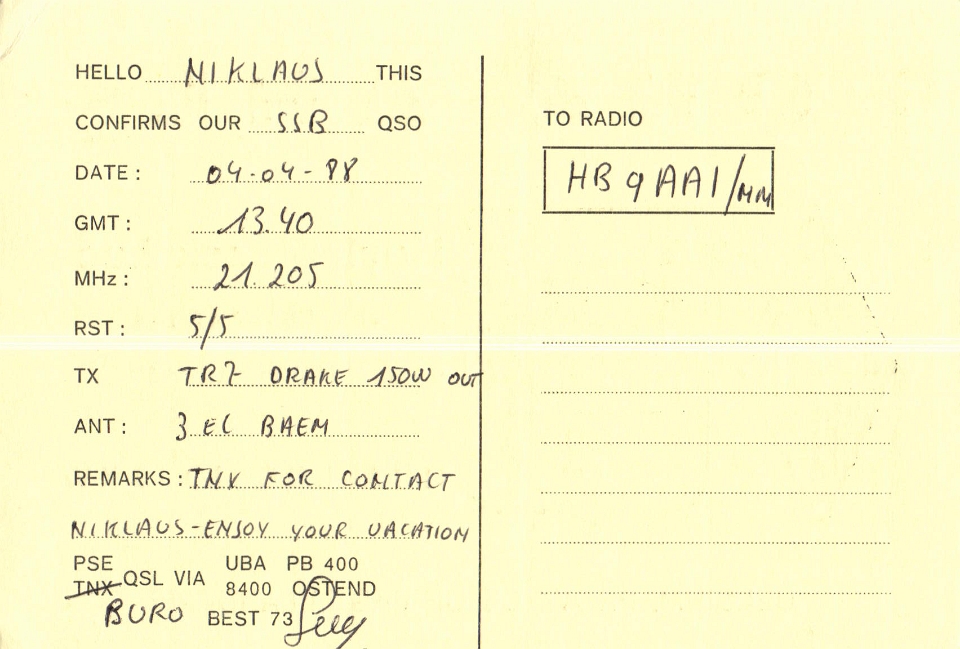 HELLO NIKLAUS THIS
CONFIRMS OUR SSB QSO
DATE : 04-04-88
GMT : 13.40
MHz : 21.205
RST : 5/5
TX TR7 DRAKE 150W OUT
ANT : 3 EL BAEM
REMARKS : TNX FOR CONTACT
NIKLAUS-ENJOY YOUR VACATION
PSE
TNX QSL VIA
UBA PB 400
8400 OSTEND
BURO BEST 73
TO RADIO
HB9AAI/MM